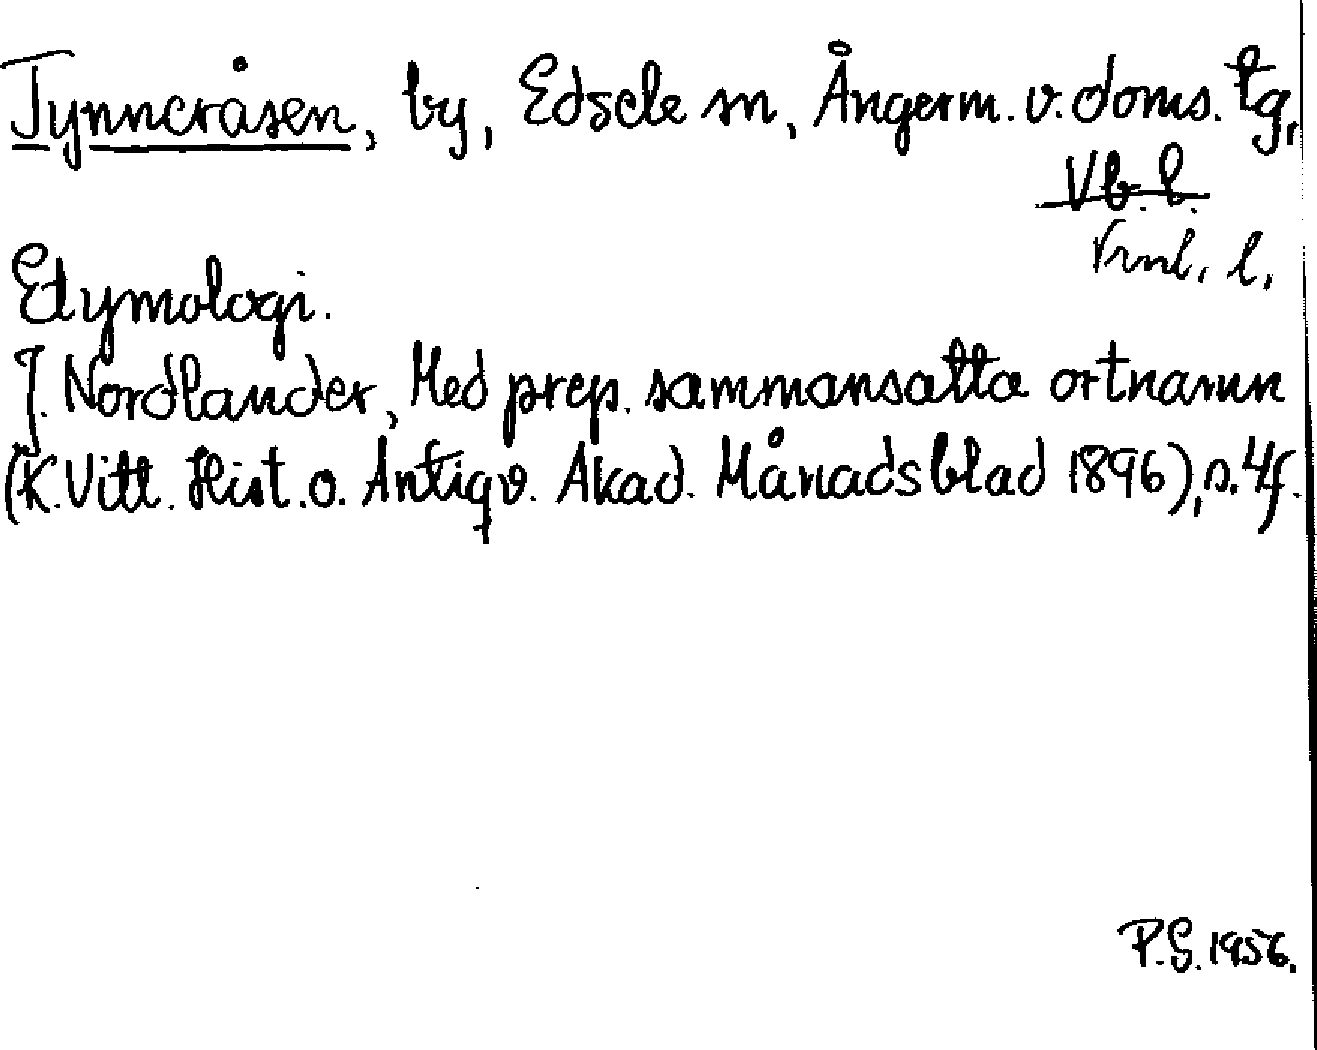 Tynneråsen, by, Edsele sn, Ångerm. v. doms. tg,
Vb. l.
Vrnl. l.
Etymologi.
J. Nordlander, Med prep. sammansatta ortnamn
(K. Vitt. Hist. o. Antiqv. Akad. Månadsblad 1896), s. 4f.
P.G. 1956.